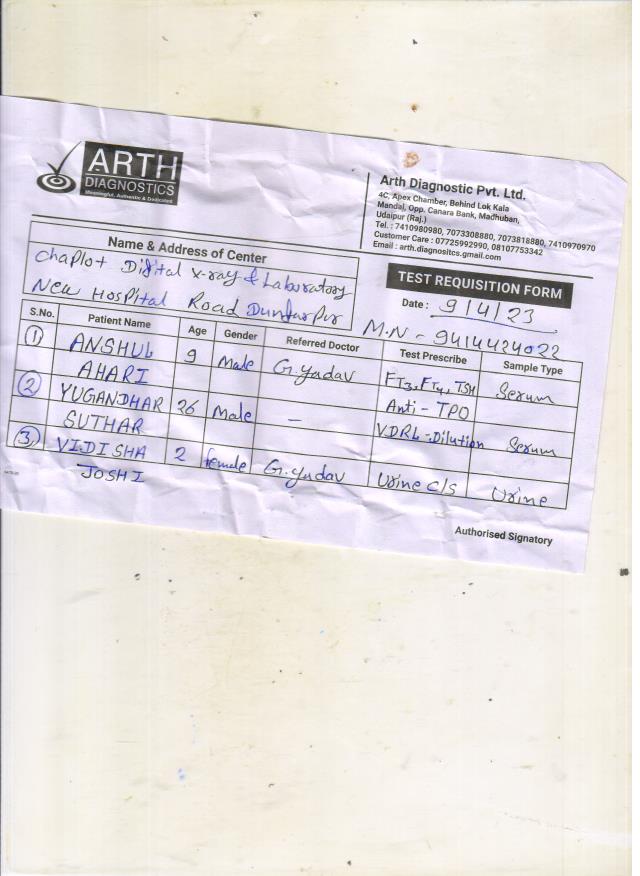 ARTH
DIAGNOSTICS
Meaningful, Authentic & Dedicated
Arth Diagnostic Pvt. Ltd.
4C, Apex Chamber, Behind Lok Kala
Mandal, Opp. Canara Bank, Madhuban,
Udaipur (Raj.)
Tel. : 7410980980, 7073308880, 7073818880, 7410970970
Customer Care : 07725992990, 08107753342
Email : arth.diagnositcs.gmail.com
Name & Address of Center
Chaplot Digital x-ray & Laboratory
New Hospital Road Dungarpur
TEST REQUISITION FORM
Date : 9/4/23
M.N - 9414424022
S.No. Patient Name Age Gender Referred Doctor Test Prescribe Sample Type
1 ANSHUL 9 Male G.yadav FT3, FT4, TSH Serum
AHARI Anti - TPO
2 YUGANDHAR 26 Male - VDRL - Dilution Serum
SUTHAR
3 VIDISHA 2 female G.yadav Urine c/s Urine
JOSHI
Authorised Signatory